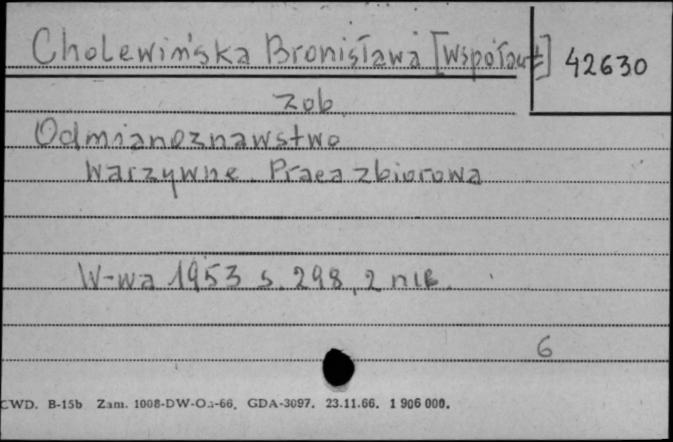 Cholewińska Bronisława [współaut.] 42630
zob.
Odmianoznawstwo
warzywne. Praca zbiorowa
W-wa 1953 s. 298, 2 nlb.
6
CWD. B-15b Zam. 1008-DW-Oa-66. GDA-3097. 23.11.66. 1 906 000.